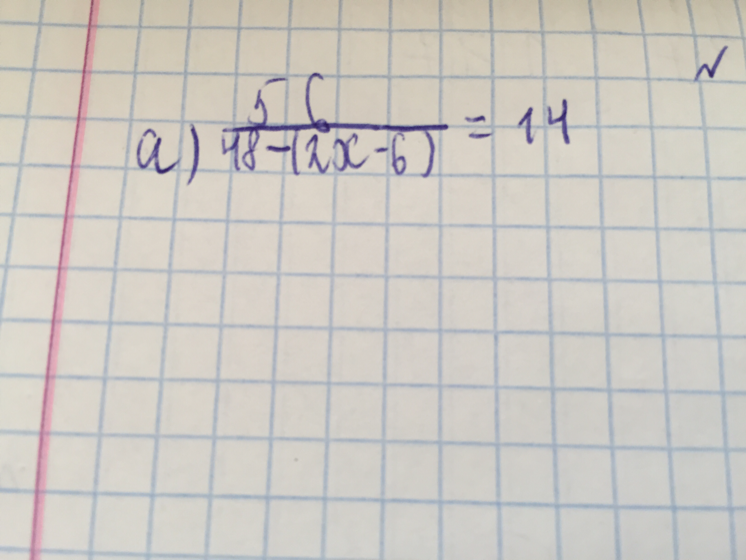 а) 56/(48-(2x-6)) = 14